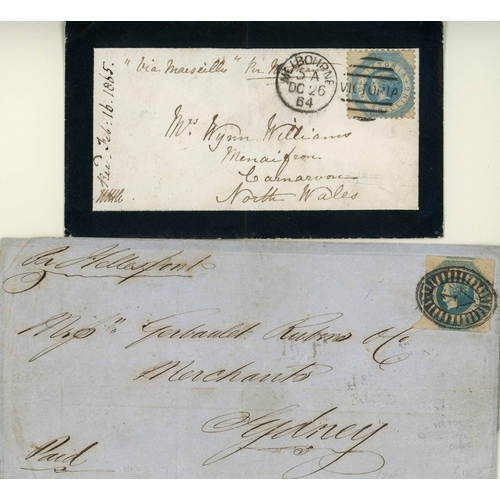 "Via Marseilles" Per M
Recd. Feb: 16. 1865.
MELBOURNE
5 A
DC 26
64
VICTORIA
Mrs Wynn Williams
Menaifron
Carnarvon
North Wales
Per Hellespont
Messrs Gerbault Rubens & Co
Merchants
Sydney
Paid